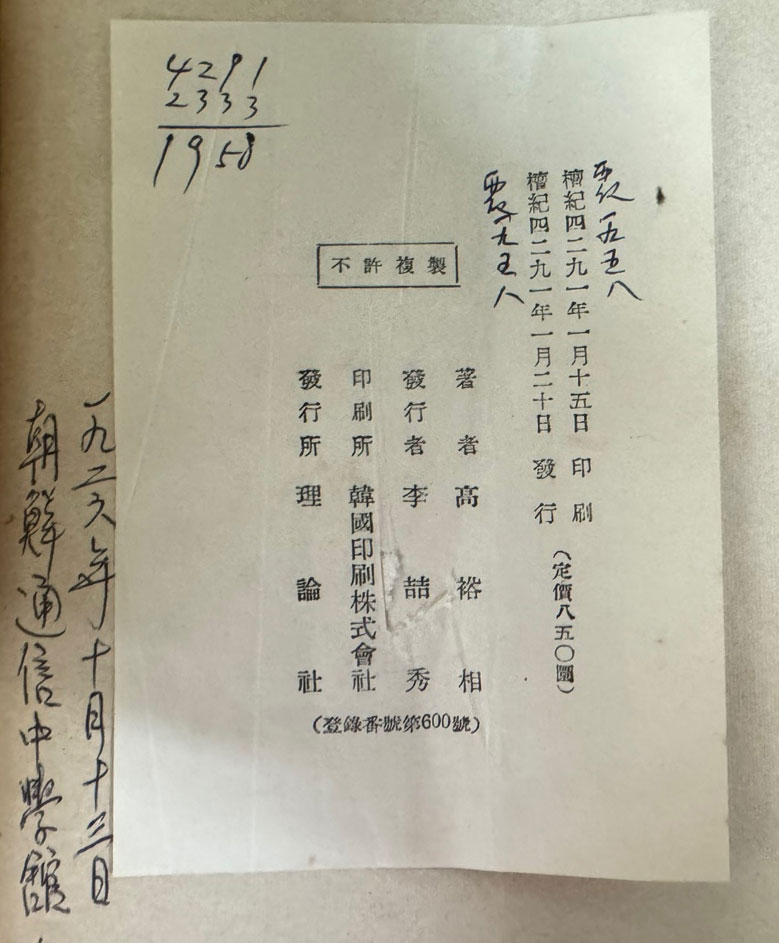 4291
2333
1958
西紀 一九五八
檀紀四二九一年一月十五日 印刷
檀紀四二九一年一月二十日 發行
西紀一九五八
(定價八五〇圜)
不許複製
著者 高裕相
發行者 李喆秀
印刷所 韓國印刷株式會社
發行所 理論社
(登錄番號第600號)
一九二六年十月十三日
朝鮮通信中學館